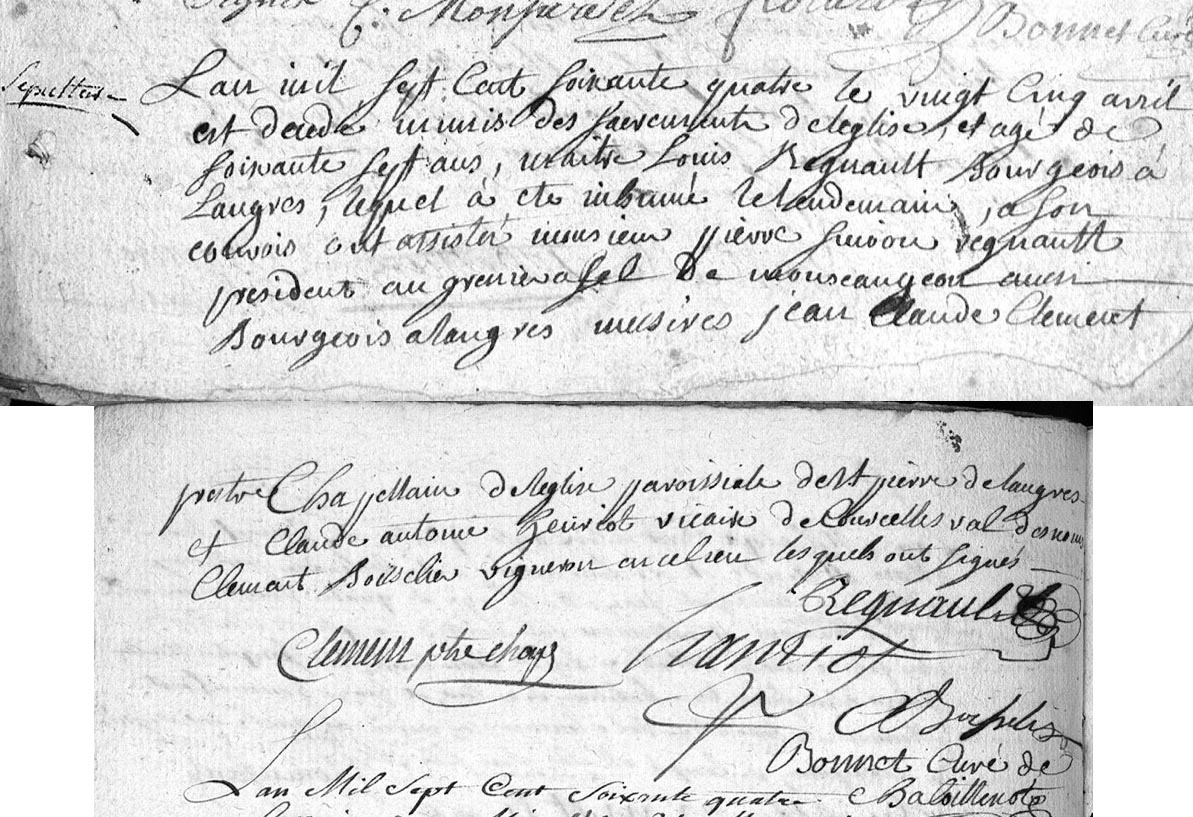 Signés C. Monfarded Bonnet Curé
Sepulture Lan mil sept Cent soixante quatre le vingt Cinq avril
est decedé munis des sacrements deleglise, et agé de
soixante sept ans, maitre Louis Regnault Bourgeois à
Langres, lequel à ete inhumé le lendemain, a son
convois ont assister monsieur pierre simon regnault
president au grenier a sel de monseaugeon aussi
Bourgeois a langres messires jean Claude Clement
pretre Chapellain deleglise paroissiale de st pierre de langres
et Claude antoine henriot vicaire de Courcelles val desnoms
Clement Boisselier vigneron en ce lieu lesquels ont signés
Regnault
Clement ptre chap henriot
C Boisselier
Bonnet Curé de
Lan Mil Sept Cent soixante quatre Chatoillenot